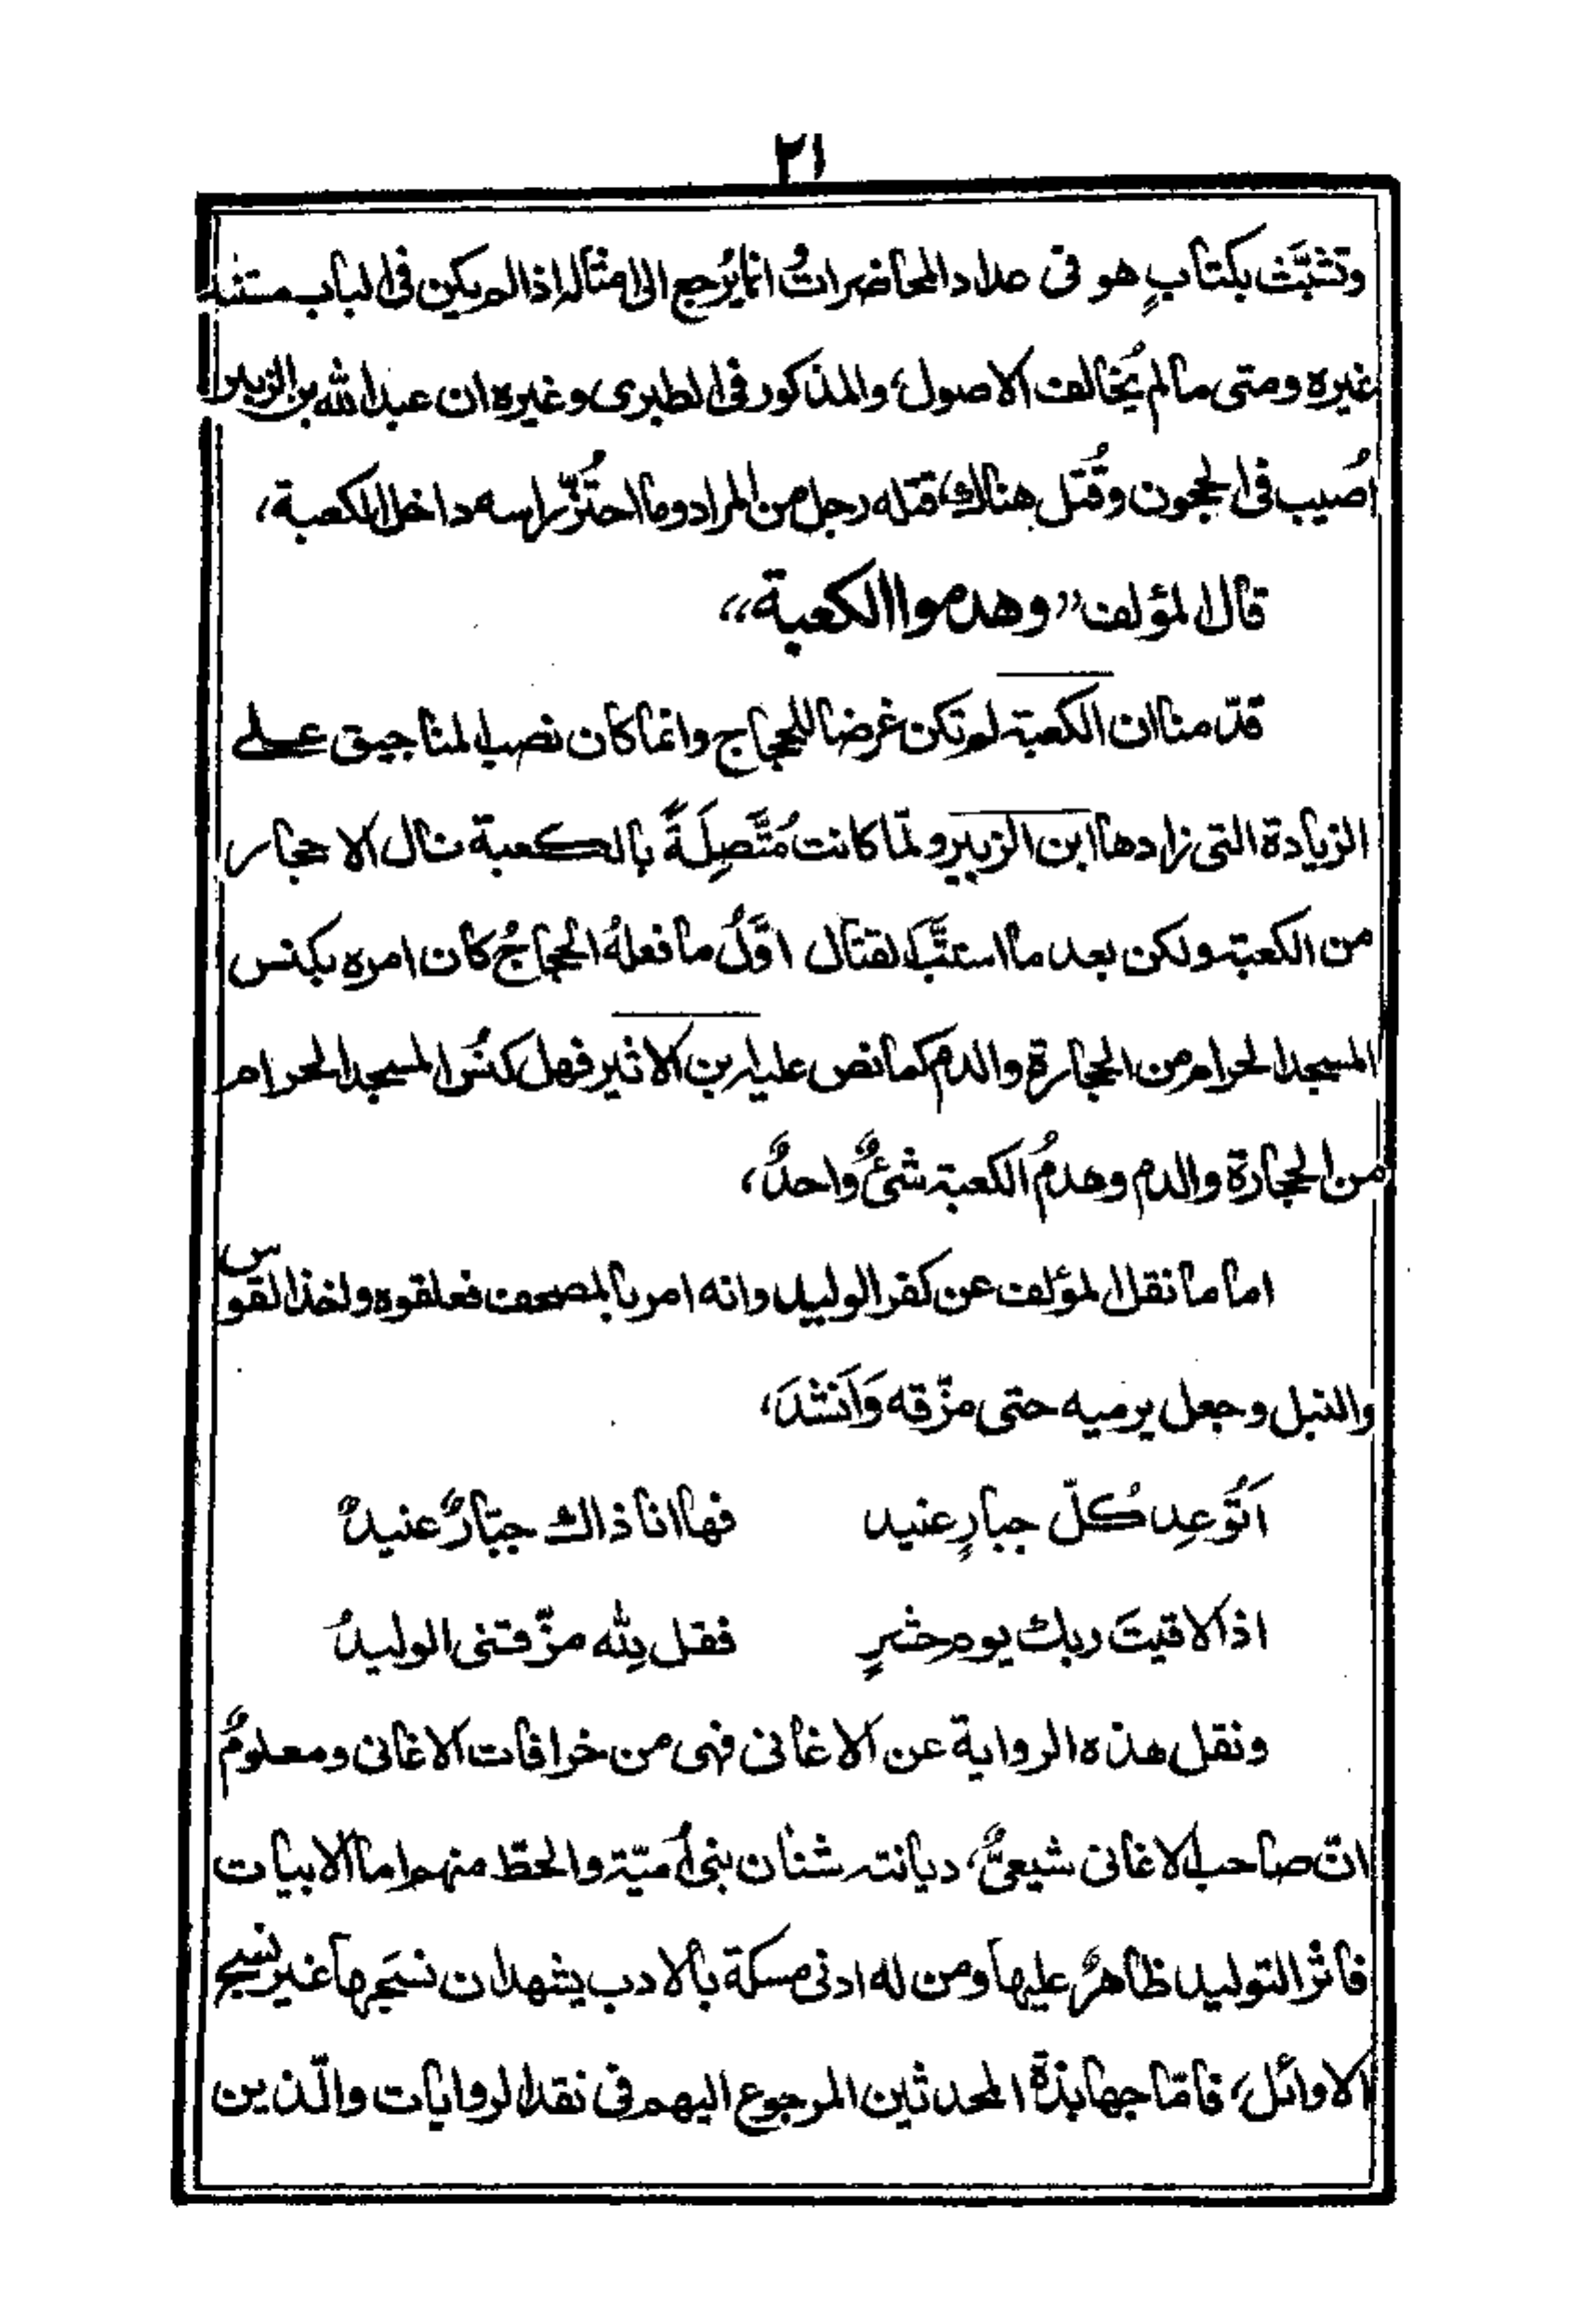 ٢١
وتثبَّث بكتابٍ هو فى عداد المحاضراتُ انما يُرجع الى امثاله اذا لم يكن فى الباب مستند
غيره ومتى ما لم يُخالف الاصول، والمذكور فى الطبرى وغيره ان عبد الله بن الزبير
اُصيب فى الحجون وقُتل هناك قتله رجل من المراد وما احتُزّ راسه داخل الكعبة،
قال المؤلف "وهدموا الكعبة"
قدّمنا ان الكعبة لم تكن غرضا للحجاج وانما كان نصب المناجيق على
الزيادة التى زادها ابن الزبير ولمّا كانت مُتَّصِلَةً بالكعبة نال الاحجار
من الكعبة ولكن بعد ما استتبَّ القتال اوَّلُ ما فعلهُ الحجاجُ كان امره بكنس
المسجد الحرام من الحجارة والدم كما نص عليه ابن الاثير فهل كنسُ المسجد الحرام
من الحجارة والدم وهدمُ الكعبة شئٌ واحدٌ،
اما ما نقل المؤلف عن كفر الوليد وانه امر بالمصحف فعلقوه واخذ القوس
والنبل وجعل يرميه حتى مزّقه وَاَنشدَ،
اَتُوَعِد كُلّ جبارٍ عنيد فها انا ذاك جبّارٌ عنيدٌ
اذا لاقيتَ ربك يوم حشرٍ فقل لِله مزّقنى الوليدُ
ونقل هذه الرواية عن الاغانى فهى من خرافات الاغانى ومعلومٌ
انّ صاحب الاغانى شيعىٌّ، ديانته شنان بنى اُميّة والحطّ منهم اما الابيات
فاثر التوليد ظاهرٌ عليها ومن له ادنى مسكة بالادب يشهد ان نسَجها غير نسج
الاوائل، فامّا جهابذة المحدثين المرجوع اليهم فى نقد الروايات والّذين